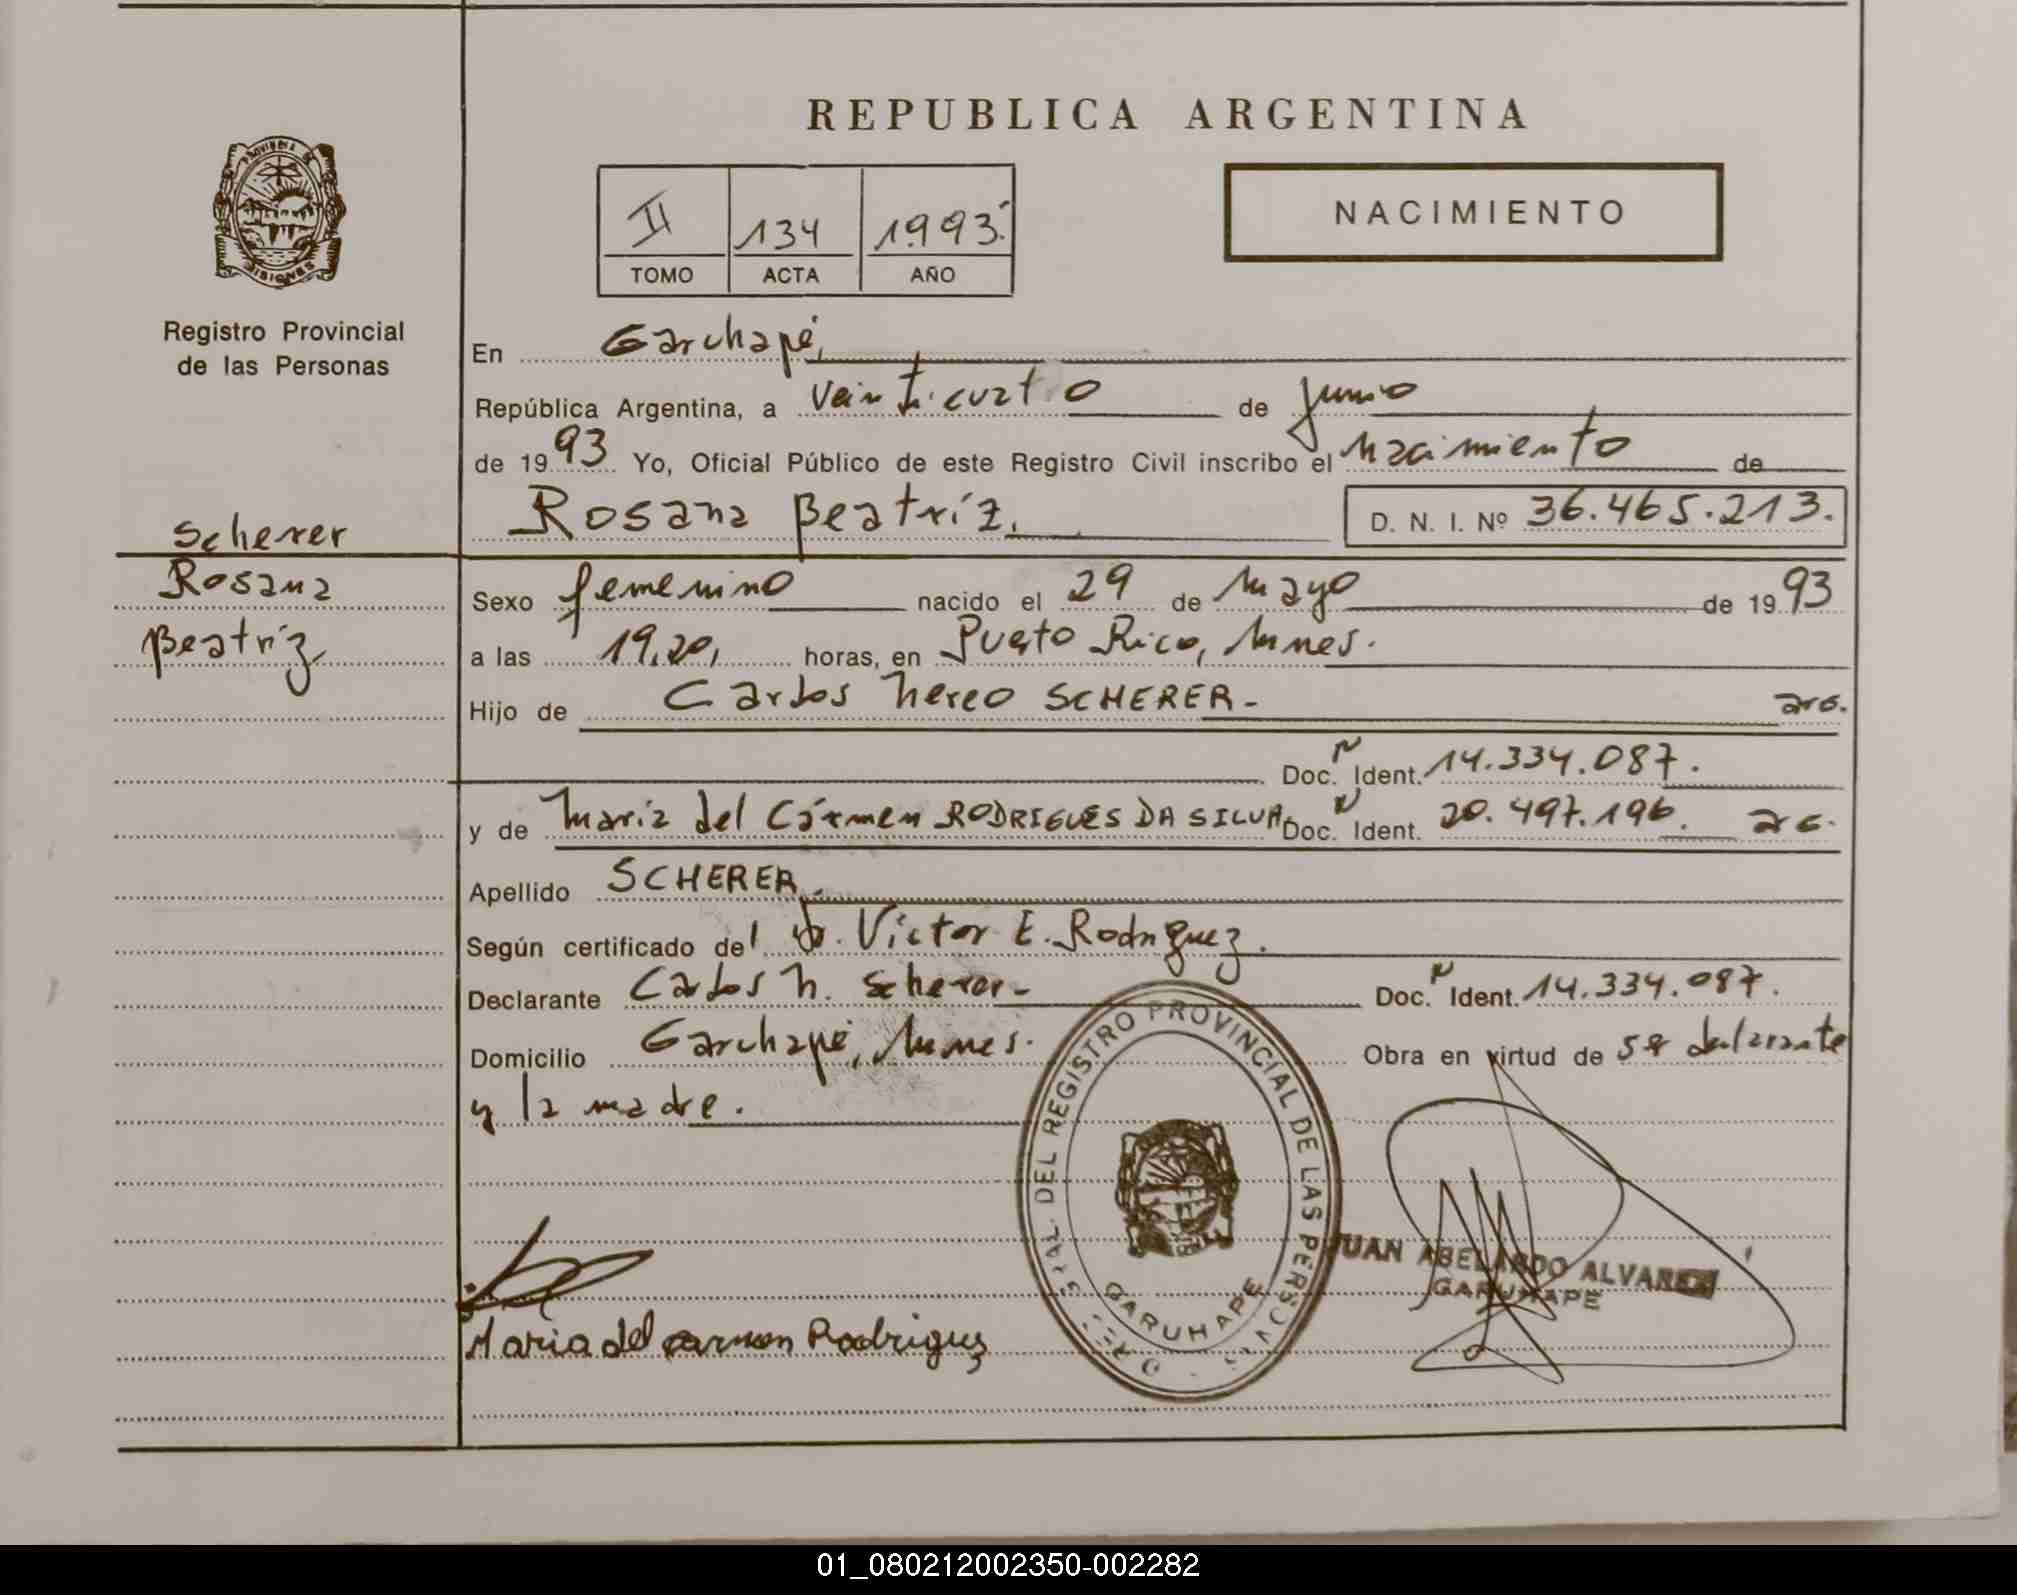 REPUBLICA ARGENTINA
PROVINCIA DE
MISIONES
Registro Provincial
de las Personas
II 134 1993
TOMO ACTA AÑO
NACIMIENTO
En Garuhapé,
República Argentina, a veinticuatro de junio
de 1993 Yo, Oficial Público de este Registro Civil inscribo el nacimiento de
Rosana Beatríz. D. N. I. Nº 36.465.213.
Scherer
Rosana
Beatríz
Sexo femenino nacido el 29 de mayo de 1993
a las 19,20, horas, en Puerto Rico, Mnes.
Hijo de Carlos Nereo SCHERER- arg.
Doc. N Ident. 14.334.087.
y de María del Cármen RODRIGUES DA SILVA. Doc. N Ident. 20.497.196. arg.
Apellido SCHERER.
Según certificado del Dr. Víctor E. Rodriguez.
Declarante Carlos N. Scherer- Doc. N Ident. 14.334.087.
Domicilio Garuhapé, Mnes. Obra en virtud de ser declarante
y la madre.
DEL REGISTRO PROVINCIAL DE LAS PERSONAS
GARUHAPE
JUAN ABELARDO ALVAREZ
GARUHAPE
Maria del carmen Rodrigues
01_080212002350-002282